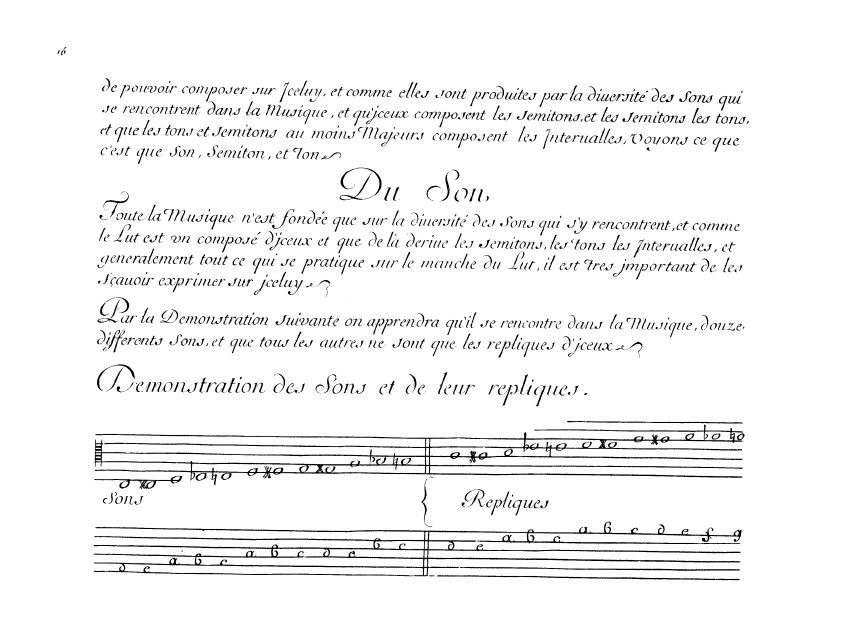 16
de pouvoir composer sur Jceluy, et comme elles sont produites par la diuersité des Sons qui
se rencontrent dans la Musique, et qu'jceux composent les semitons, et les semitons les tons,
et que les tons et semitons au moins Majeurs composent les Interualles, Voyons ce que
c'est que Son, Semiton, et Ton
Du Son,
Toute la Musique n'est fondée que sur la diuersité des Sons qui s'y rencontrent, et comme
le Lut est vn composé d'jceux et que de là deriue les semitons, les tons les Interualles, et
generalement tout ce qui se pratique sur le manche du Lut, il est tres jmportant de les
sçauoir exprimer sur jceluy
Par la Demonstration suiuante on apprendra qu'il se rencontre dans la Musique, douze
differents Sons, et que tous les autres ne sont que les repliques d'jceux
Demonstration des Sons et de leur repliques.
Sons Repliques
d e a b c a b c d e b c d e a b c a b c d e f g